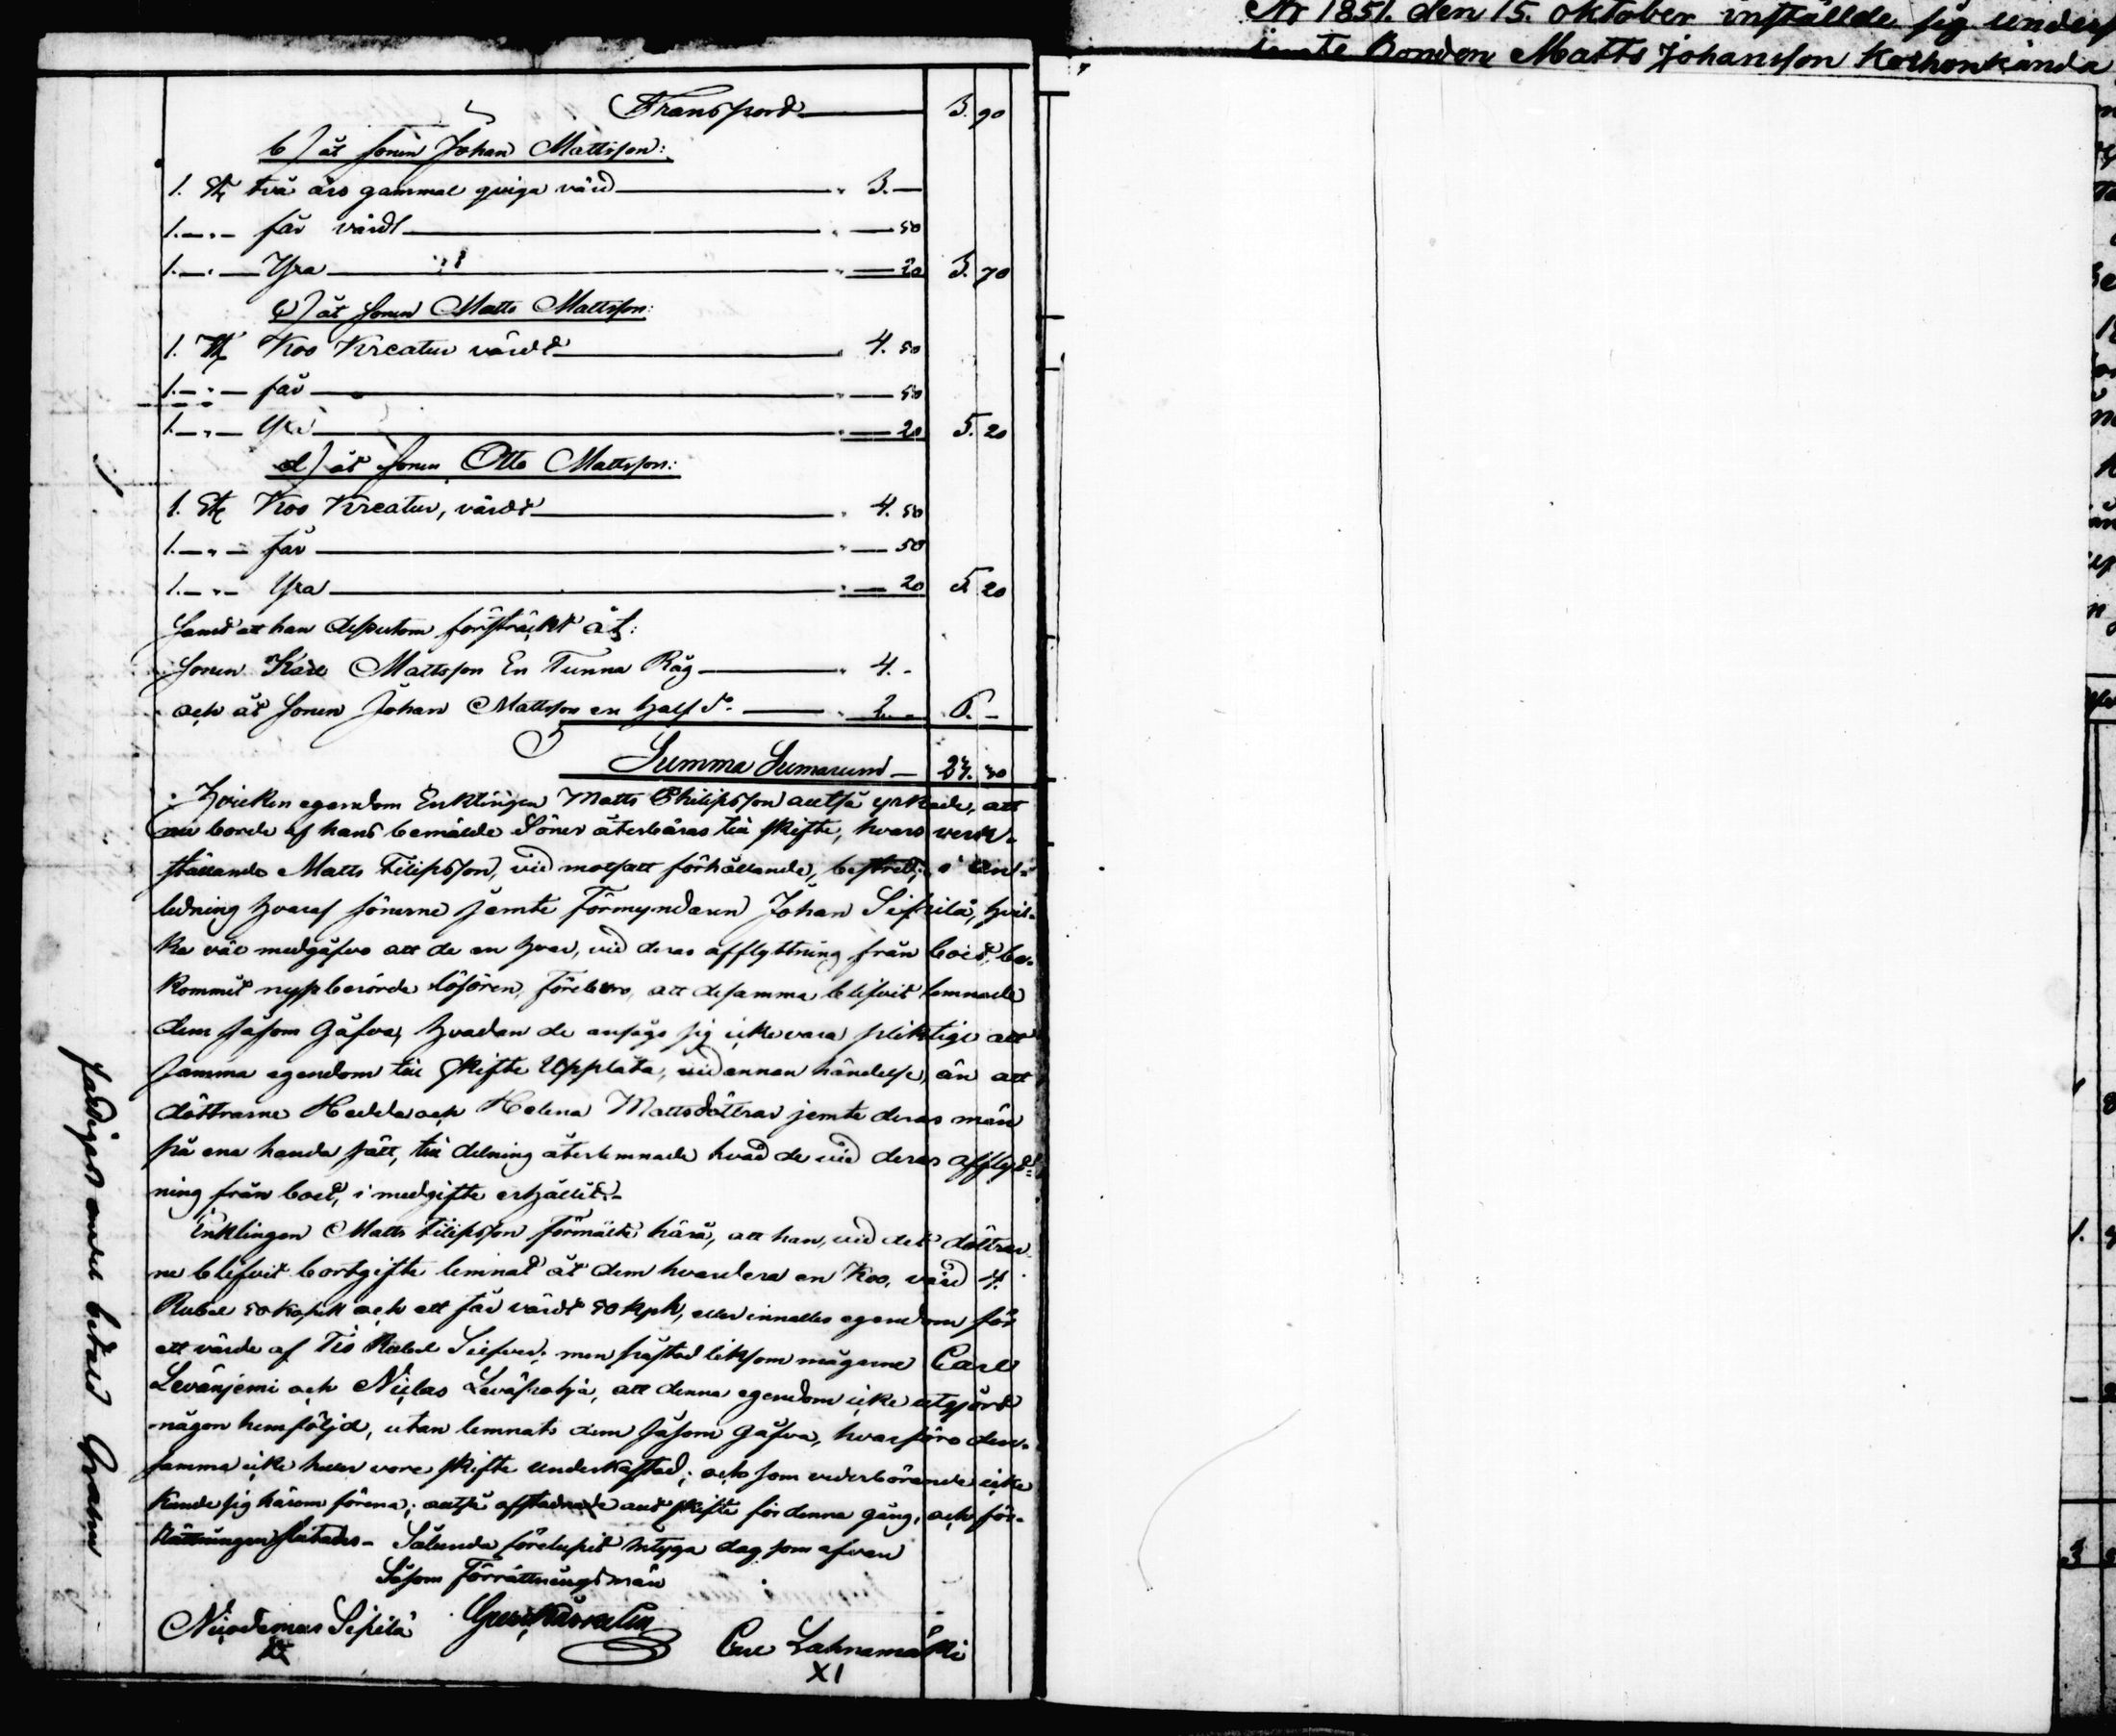 Transport 3. 90
b) åt sonen Johan Mattsson:
1. St. två års gammal quiga värd " 3.—
1. — " — får värdt " — 50
1. — " — Yxa " — 20 3. 70
c) åt sonen Matts Mattsson:
1. St. Koo Kreatur värdt " 4. 50
1. — " — får " — 50
1. — " — Yxa " — 20 5. 20
d) åt sonen Otto Mattsson:
1. St. Koo Kreatur, värdt " 4. 50
1. — " — får " — 50
1. — " — Yxa " — 20 5. 20
samt att han dessutom försträckt åt:
sonen Karl Mattsson En Tunna Råg " 4. -
och åt sonen Johan Mattsson en half d:o " 2. - 6. -
Summa Sumarum
Hvilken egendom Enklingen Matts Philipsson alltså yrkade, att
nu borde af hans bemälde Söner återbäras till skifte, hvars verk-
ställande Matts Filipsson, vid motsatt förhållande, bestred; i an-
ledning hvaraf sönerne jämte Förmyndaren Johan Sippilä, hvil-
ka väl medgåfvo att de en hvar, vid deras afflyttning från boet, be-
kommit nyssberörde lösören, förebära, att desamma blifvit lemnade
dem såsom gåfva, hvadan de ansågo sig icke vara pliktige att
samma egendom till skifte Upplåta, vid annan händelse, än att
döttrarne Hedda och Helena Mattsdöttrar jemte deras män
på ena handa sätt, till delning återlemnade hvad de vid deras afflytt-
ning från boet, i medgifte erhållit.-
Enklingen Matts Filipsson förmälte härå, att han, vid det döttrar-
ne blifvit bortgifte lemnat åt dem hvardera en Koo, värd 4.
Rubel 50 kopek och ett får värdt 50 kpk, eller inalles egendom för
ett värde af Tio Rubel Silfver; men påstod liksom mågarne Carl
Levänjemi och Niclas, att denna egendom icke utgjord
någon hemföljd, utan lemnats dem såsom gåfva, hvarföre den-
samma icke heller vore skifte underkastad; och som vederbörande icke
kunde sig härom förena; alltså afstadnade allt skifte för denna gång, och för-
rättningen slutades.- Sålunda förelupit intyga dag som ofvan
Såsom Förrättningsmän
Nicodemus Sipilä
Carl Lahnamäki
XI
År 1851. den 15. oktober inställde sig unders
jemte Bonden Matts Johansson Korhonkända